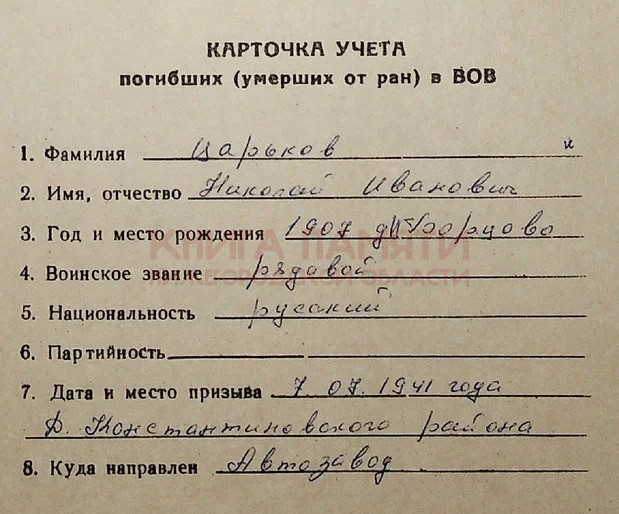 КАРТОЧКА УЧЕТА
погибших (умерших от ран) в ВОВ
1. Фамилия Царьков и
2. Имя, отчество Николай Иванович
3. Год и место рождения 1907
КНИГА ПАМЯТИ
4. Воинское звание рядовой
НИЖЕГОРОДСКОЙ ОБЛАСТИ
5. Национальность русский
6. Партийность
7. Дата и место призыва 7.07.1941 года
Д. Константиновского района
8. Куда направлен Автозавод